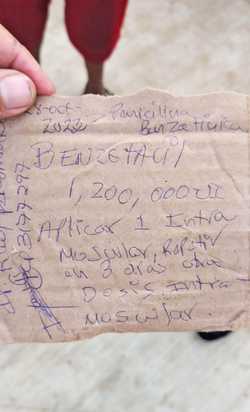 28-oct-
2022 Penicilina
Benzatinica
BENZETACIL
1,200,000 UI
Aplicar 1 Intra
Muscular, Repetir
en 3 dias otra
Dosis Intra-
Muscular.